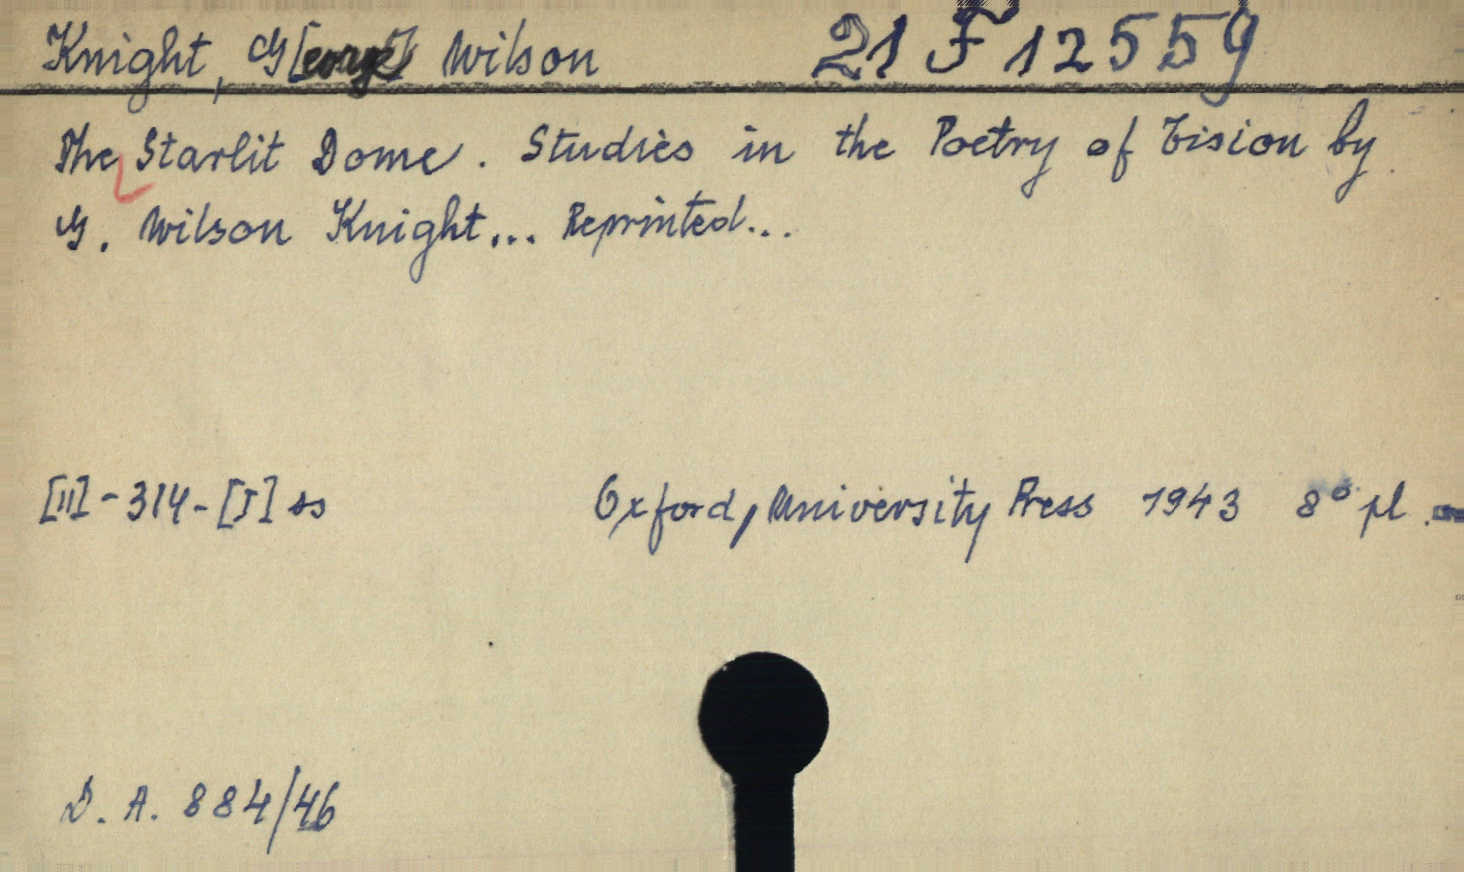 Knight, G[eorge] Wilson 21 F 12559
The Starlit Dome. Studies in the Poetry of Vision by
G. Wilson Knight... Reprinted...
[II]-314-[I] ss Oxford, University Press 1943 8° pl.
D. A. 884/46